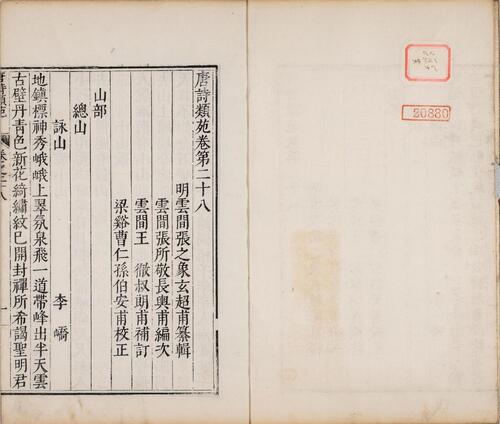 唐詩類苑卷第二十八
明雲間張之象玄超甫纂輯
雲間張所敬長輿甫編次
雲間王徹叔朗甫補訂
梁谿曹仁孫伯安甫校正
山部
總山
詠山 李嶠
地鎮標神秀峨峨上翠氛泉飛一道帶峰出半天雲
古壁丹青色新花綺繡紋已開封禪所希謁聖明君
唐詩類苑
20880